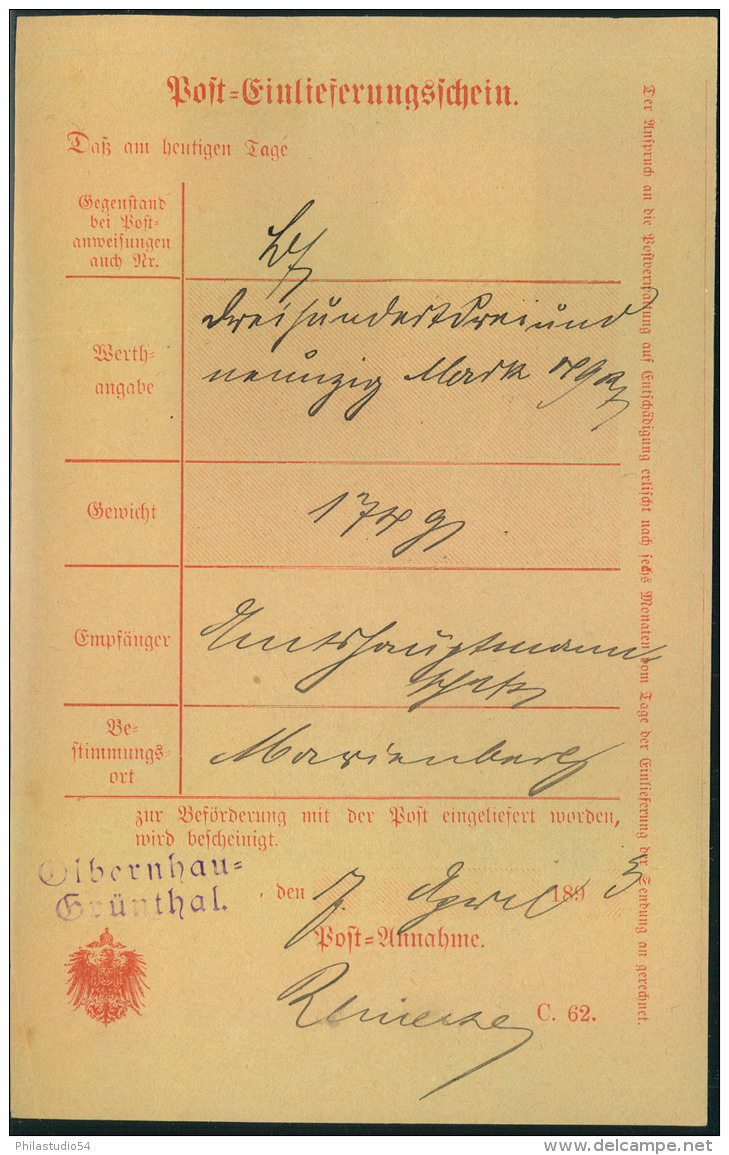 Post-Einlieferungsschein.
Daß am heutigen Tage
Gegenstand
bei Post-
anweisungen
auch Nr.
Werth-
angabe
dreihundertdreiund
neunzig Mark
Gewicht
174 g
Empfänger
Amtshauptmann
schaft
Be-
stimmungs-
ort
Marienberg
zur Beförderung mit der Post eingeliefert worden,
wird bescheinigt.
Olbernhau-
Grünthal.
, den 7. April 1893
Post-Annahme.
C. 62.
Der Anspruch an die Postverwaltung auf Entschädigung erlischt nach sechs Monaten vom Tage der Einlieferung der Sendung an gerechnet.
Philastudio54
delcampe.net